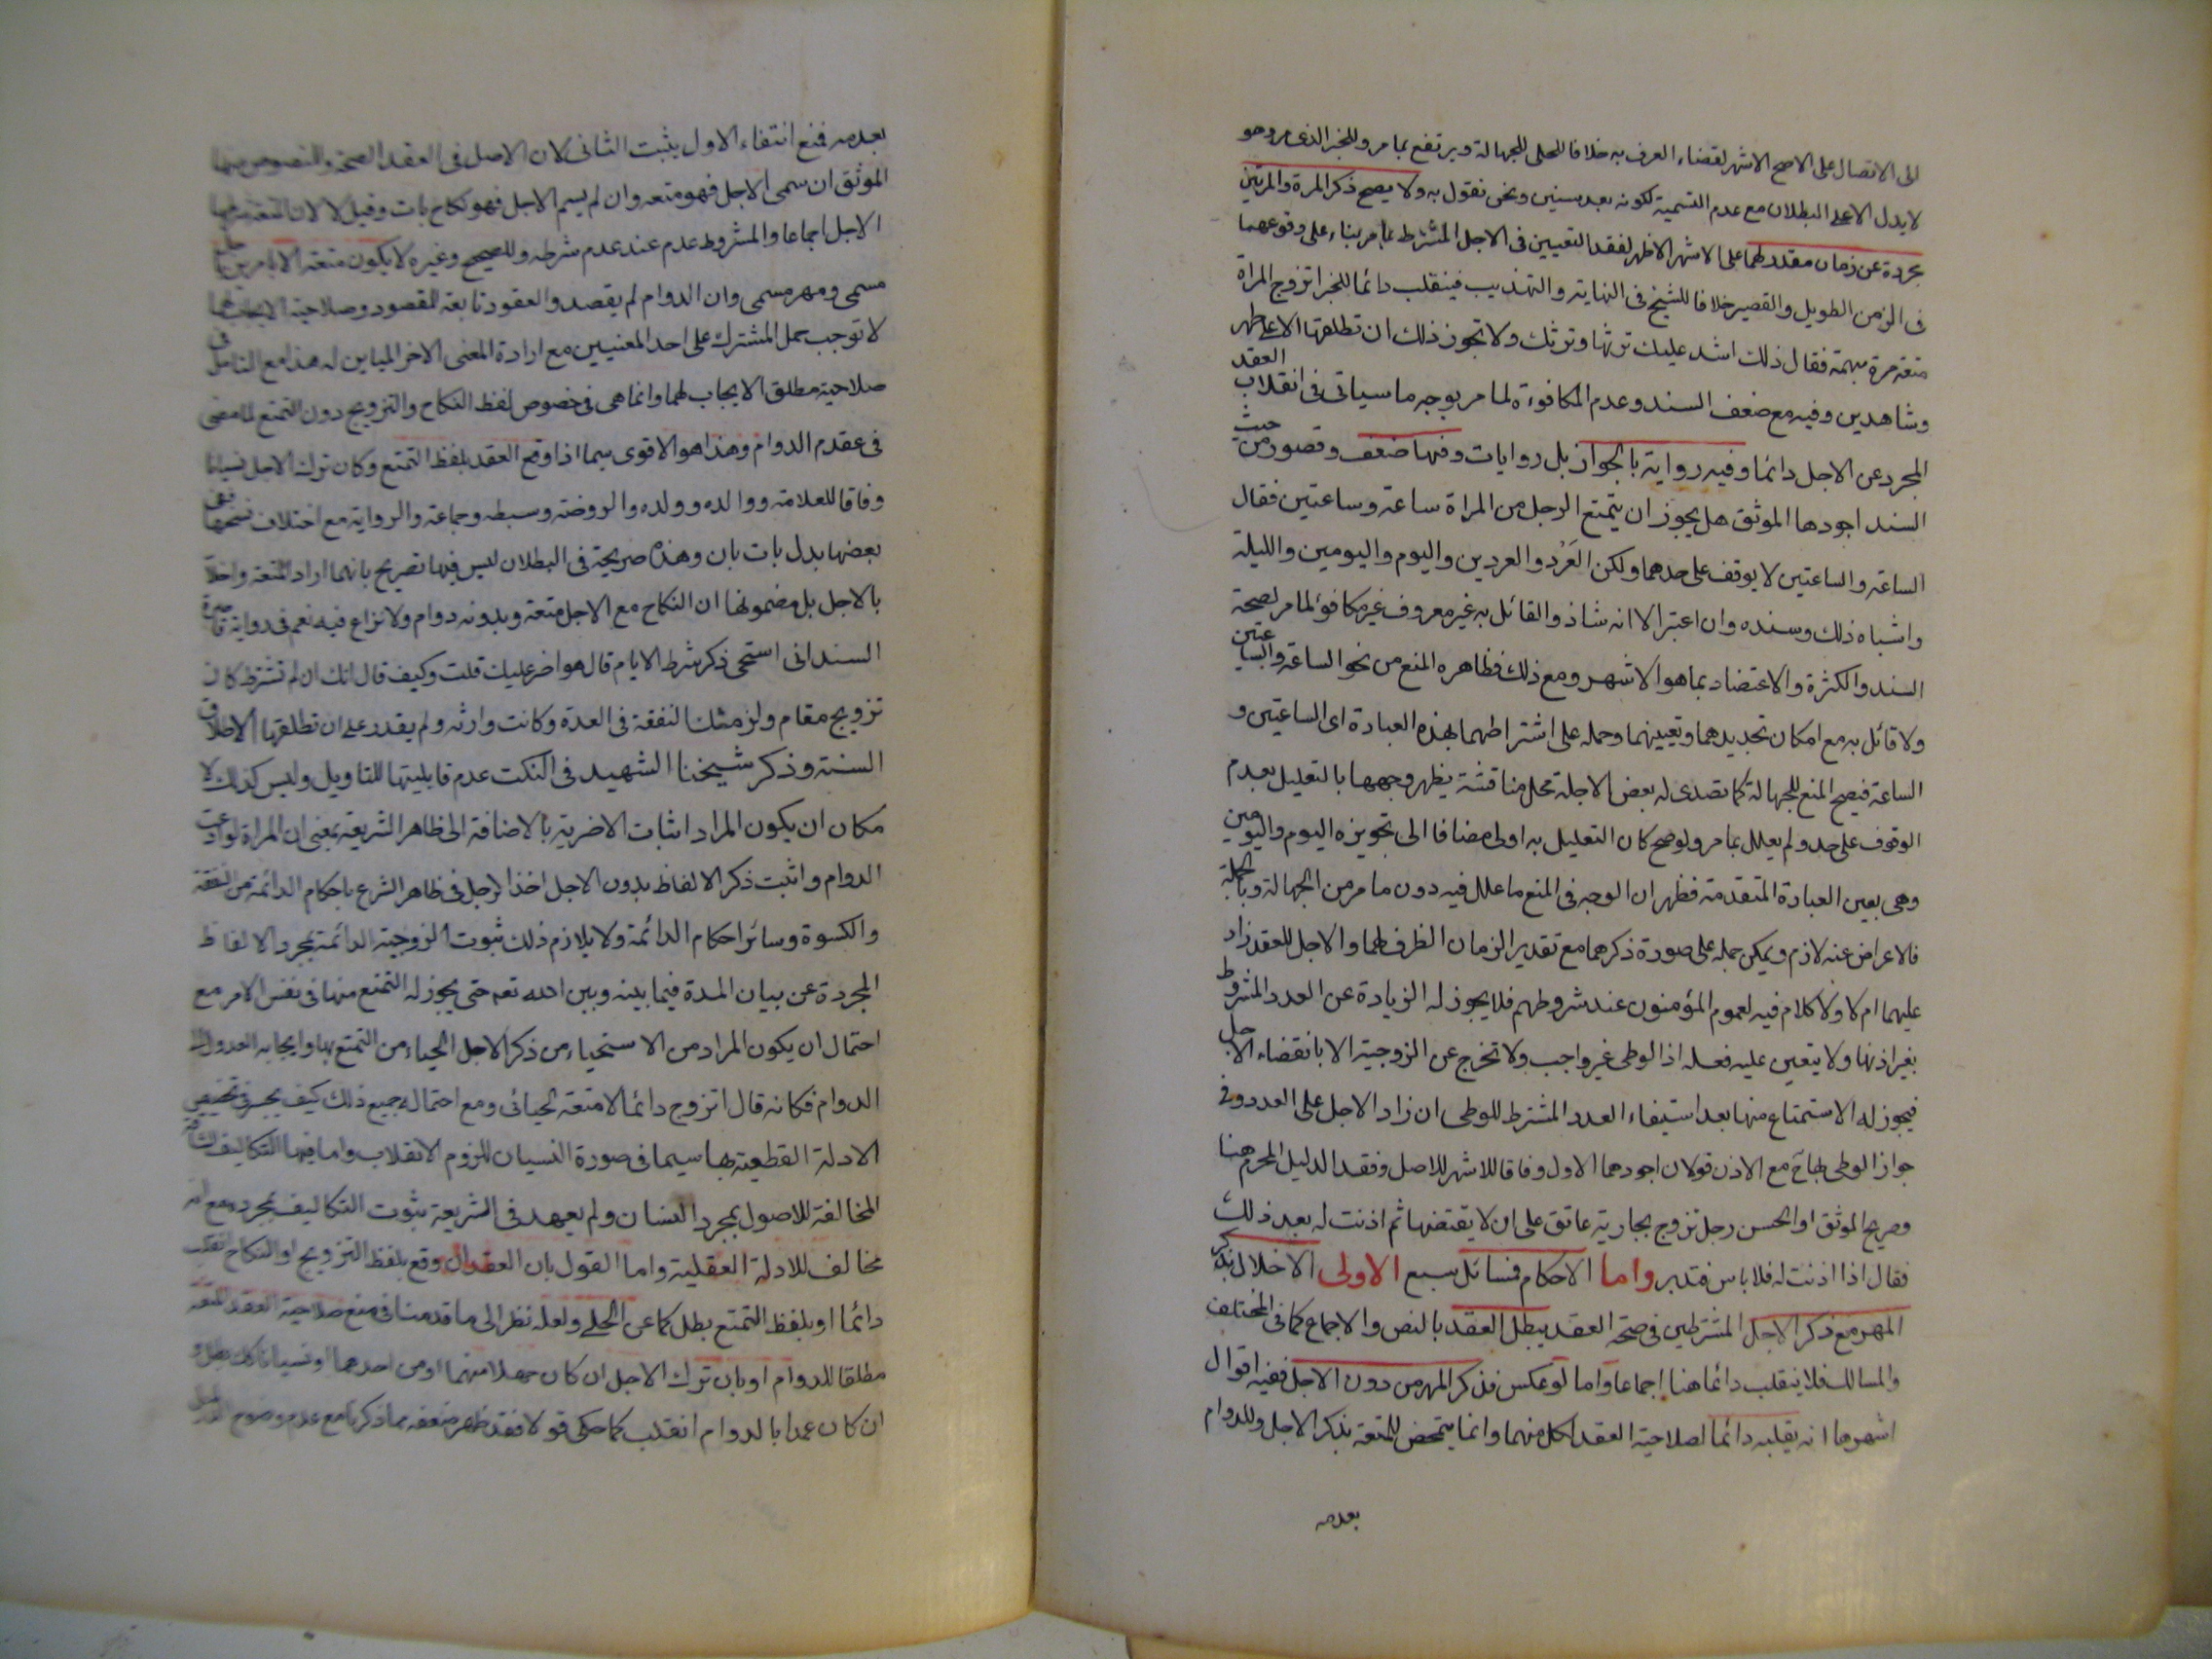 الى الاتصال على الاصح الاشهر لقضاء العرف به خلافا للحلى للجهالة ويرتفع بما مر وللخبر الذى مر وهو
لا يدل الا على البطلان مع عدم التسمية لكونه بعد سنين ونحن نقول به ولا يصح ذكر المرة والمرتين
مجردة عن زمان مقدر لهما على الاشهر الاظهر لفقد التعيين فى الاجل المشترط بامر بناء على وقوعهما
فى الزمن الطويل والقصير خلافا للشيخ فى النهاية والتهذيب فينقلب دائما للخبر اتزوج المراة
متعة مرة مبهمة فقال ذلك اشد عليك ترثها وترثك ولا تجوز ذلك ان تطلقها الا على طهر
وشاهدين وفيه مع ضعف السند وعدم المكافوءة لما مر بوجه ما سياتى فى انقلاب العقد
المجرد عن الاجل دائما وفيه رواية بالجواز بل روايات وفيها ضعف وقصور من حيث
السند اجودها الموثق هل يجوز ان يتمتع الرجل من المراة ساعة وساعتين فقال
الساعة والساعتين لا يوقف على حدهما ولكن العَرْد والعردين واليوم واليومين والليلة
واشباه ذلك وسنده وان اعتبر الا انه شاذ والقائل به غير معروف غير مكافؤ لما مر لصحة
السند والكثرة والاعتضاد بما هو الاشهر ومع ذلك فظاهره المنع من نحو الساعة والساعتين
ولا قائل به مع امكان تحديدهما وتعيينهما وحمله على اشتراطهما بهذه العبادة اى الساعتين و
الساعة فيصح المنع للجهالة كما تصدى له بعض الاجلة محل مناقشة يظهر وجهها بالتعليل بعدم
الوقوف على حد ولم يعلل بما مر ولو صح كان التعليل به اولى مضافا الى تجويزه اليوم واليومين
وهى بعين العبادة المتقدمة فظهر ان الوجه فى المنع ما علل فيه دون ما مر من الجهالة وبالجملة
فالاعراض عنه لازم ويمكن حمله على صورة ذكرهما مع تقدير الزمان الظرف لهما والاجل للعقد زاد
عليهما ام لا ولا كلام فيه لعموم المؤمنون عند شروطهم فلا يجوز له الزيادة عن العدد المشروط
بغير اذنها ولا يتعين عليه فعله اذ الوطى غير واجب ولا تخرج عن الزوجية الا بانقضاء الاجل
فيجوز له الاستمتاع منها بعد استيفاء العدد المشترط للوطى ان زاد الاجل على العدد وفى
جواز الوطى لها ح مع الاذن قولان اجودهما الاول وفاقا للاشهر للاصل وفقد الدليل المحرم هنا
وصريح الموثق او الحسن رجل تزوج بجارية عاتق على ان لا يقتضها ثم اذنت له بعد ذلك
فقال اذا اذنت له فلا باس فتدبر واما الاحكام فمسائل سبع الاولى الاخلال بذكر
المهر مع ذكر الاجل المشترطين فى صحة العقد يبطل العقد بالنص والاجماع كما فى المختلف
والمسالك فلا ينقلب دائما هنا اجماعا واما لو عكس فذكر المهر من دون الاجل ففيه اقوال
اشهرها انه يقلبه دائما لصلاحية العقد لكل منهما وانما يتمحض للمتعة بذكر الاجل وللدوام
بعدمه
بعدمه فمع انتفاء الاول يثبت الثانى لان الاصل فى العقد الصحة والنصوص منها
الموثق ان سمى الاجل فهو متعة وان لم يسم الاجل فهو نكاح بات وقيل لا لان المتعة شرطها
الاجل اجماعا والمشروط عدم عند عدم شرطه وللصحيح وغيره لا يكون متعة الا بامرين باجل
مسمى ومهر مسمى وان الدوام لم يقصد والعقود تابعة للقصود وصلاحية الايجاب لهما
لا توجب حمل المشترك على احد المعنيين مع ارادة المعنى الاخر المباين له هذا مع التامل فى
صلاحية مطلق الايجاب لهما وانما هى فى خصوص لفظ النكاح والتزويج دون التمتع لما مضى
فى عقد الدوام وهذا هو الاقوى سيما اذا وقع العقد بلفظ التمتع وكان ترك الاجل نسيانا
وفاقا للعلامة ووالده وولده والروضة وسبطه وجماعة والرواية مع اختلاف نسخها ففى
بعضها بدل بات بان وهذه صريحة فى البطلان ليس فيها تصريح بانهما ارادا المتعة واخلا
بالاجل بل مضمونها ان النكاح مع الاجل متعة وبدونه دوام ولا نزاع فيه نعم فى رواية قاصرة
السند انى استحى ذكر شرط الايام قال هو اضر عليك قلت وكيف قال انك ان لم تشترط كان
تزويج مقام ولزمتك النفقة فى العدة وكانت وارثه ولم يقدر على ان تطلقها الا طلاق
السنة وذكر شيخنا الشهيد فى النكت عدم قابليتها للتاويل وليس كذلك لا
مكان ان يكون المراد اثبات الاضرية بالاضافة الى ظاهر الشريعة بمعنى ان المراة لو ادعت
الدوام واثبت ذكر الالفاظ بدون الاجل اخذ الرجل فى ظاهر الشرع باحكام الدائمة من النفقة
والكسوة وسائر احكام الدائمة ولا يلازم ذلك ثبوت الزوجية الدائمة بمجرد الالفاظ
المجردة عن بيان المدة فيما بينه وبين الله تعه حتى يجوز له التمتع منها فى نفس الامر مع
احتمال ان يكون المراد من الاستحياء من ذكر الاجل الحياء من التمتع بها وايجابه العدول الى
الدوام فكانه قال اتزوج دائما لا متعة لحيائى ومع احتماله جميع ذلك كيف يجسر فى تخصيص
الادلة القطعية بها سيما فى صورة النسيان للزوم الانقلاب واما فيها التكاليف الشاقة
المخالفة للاصول بمجرد النسيان ولم يعهد فى الشريعة ثبوت التكاليف بمجرده مع انه
مخالف للادلة العقلية واما القول بان العقد ان وقع بلفظ التزويج او النكاح انقلب
دائما او بلفظ التمتع بطل كما عن الحلى ولعله نظر الى ما قدمنا فى منع صلاحية العقد للمتعة
مطلقا للدوام او بان ترك الاجل ان كان جهلا منهما او من احدهما او نسيانا كك بطل و
ان كان عمدا بالدوام انقلب كما حكى قولا فقد ظهر ضعفه مما ذكرنا مع عدم وضوح